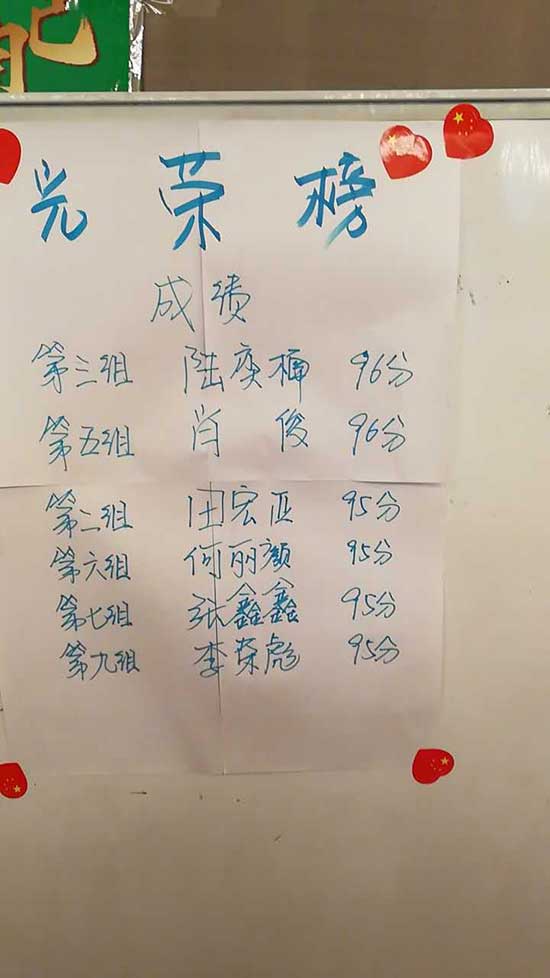 光荣榜
成绩
第三组 陆奕楠 96分
第五组 肖俊 96分
第二组 田宏亚 95分
第六组 何丽颜 95分
第七组 张鑫鑫 95分
第九组 李荣彪 95分